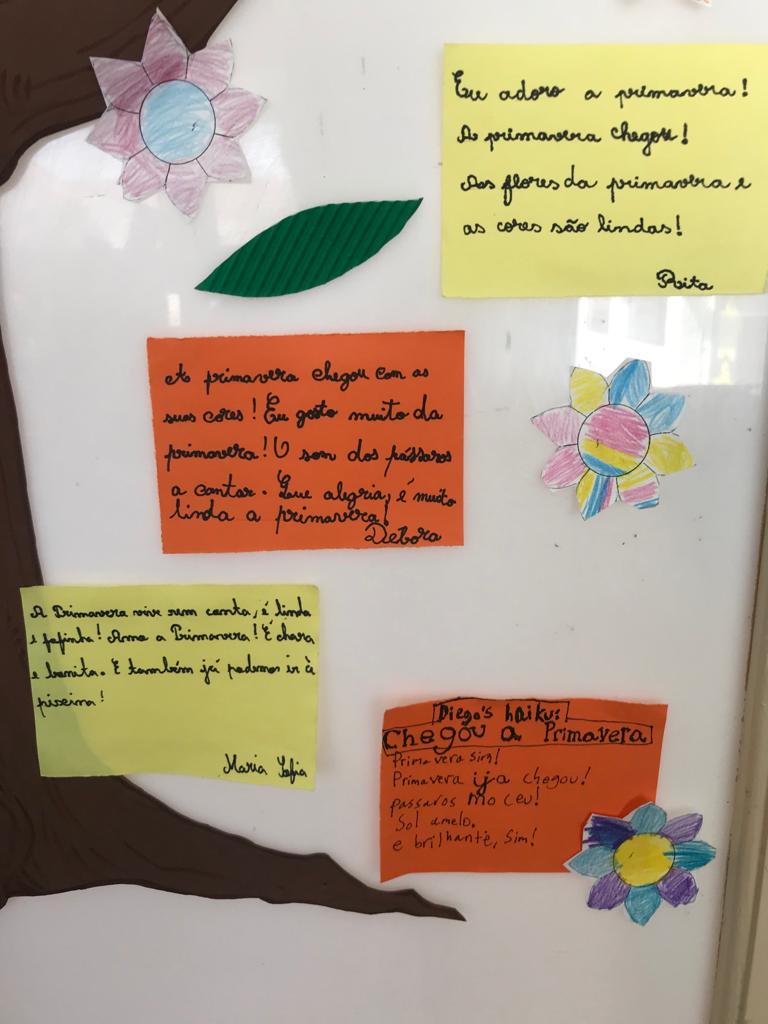 Eu adoro a primavera!
A primavera chegou!
As flores da primavera e
as cores são lindas!
Rita
A primavera chegou com as
suas cores! Eu gosto muito da
primavera! O som dos pássaros
a cantar. Que alegria, é muito
linda a primavera!
Debora
A Primavera vive sem conta, é linda
e fofinha! Amo a Primavera! É
e bonita. E também já podemos ir à
piscina!
Maria Sofia
Diego's haiku:
Chegou a Primavera
Primavera Sim!
Primavera ija chegou!
passaros no ceu!
Sol amelo.
e brilhante, Sim!